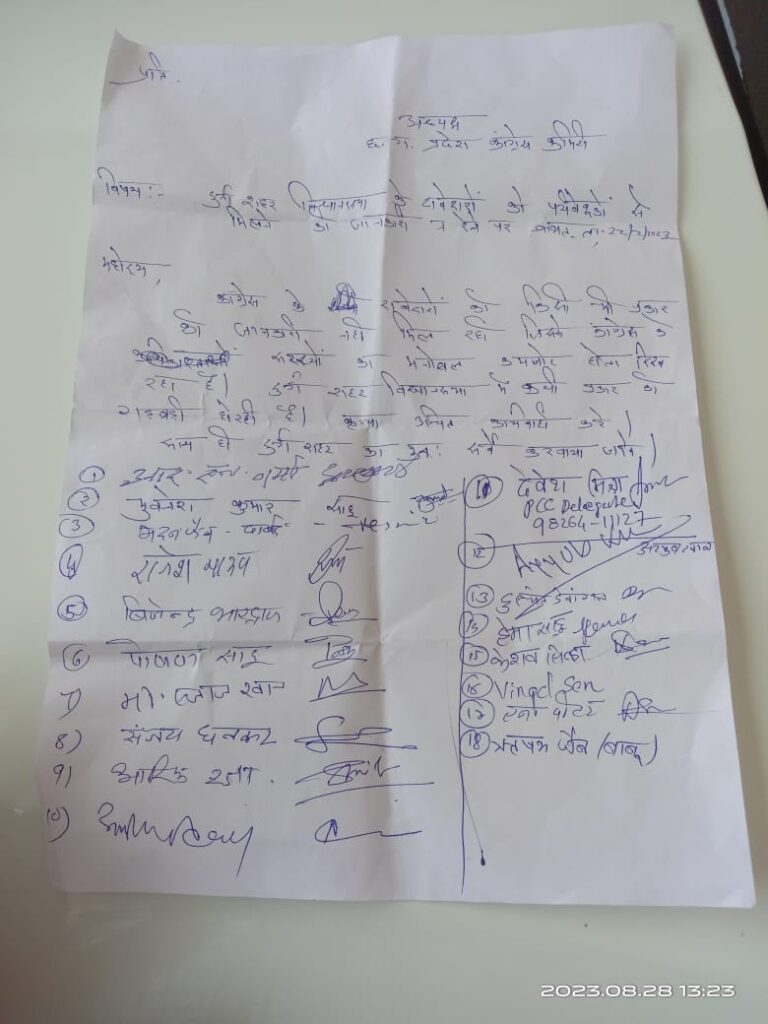 प्रति,
अध्यक्ष
छ. ग. प्रदेश कांग्रेस कमेटी
विषय:- दुर्ग शहर विधानसभा के दावेदारों को पर्यवेक्षकों से
मिलने की जानकारी न देने पर
महोदय,
कांग्रेस के दावेदारों को किसी भी प्रकार
की जानकारी नही मिल रही जिसके कांग्रेस के
सदस्यों का मनोबल कमजोर होता दिख
रहा है। दुर्ग शहर विधानसभा में सभी प्रकार की
गडबडी हो रही है। कृपया उचित कार्यवाही करे।
साथ ही दुर्ग शहर का पुनः सर्वे करवाया जावे।
1 आर. एन. वर्मा
2 भुवनेश कुमार साहू
3 मदन जैन -
4 राजेश यादव
5 विजेन्द्र भारद्वाज
6 साहू
7) मो. खान
8) संजय धनकर
9) आरिफ रजा.
10)
11 देवेश मिश्रा
PCC Delegate
98264-11127
12 AYYUB
13
14
15 केशव सिन्हा
16 Vinod Sen
17 पीटर
18 ऋषभ जैन (बाबू)
2023.08.28 13:23